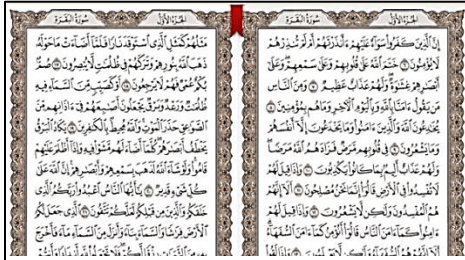 الجزء الأول سورة البقرة
إِنَّ ٱلَّذِينَ كَفَرُوا۟ سَوَآءٌ عَلَيْهِمْ ءَأَنذَرْتَهُمْ أَمْ لَمْ تُنذِرْهُمْ
لَا يُؤْمِنُونَ ٦ خَتَمَ ٱللَّهُ عَلَىٰ قُلُوبِهِمْ وَعَلَىٰ سَمْعِهِمْ وَعَلَىٰٓ
أَبْصَٰرِهِمْ غِشَٰوَةٌ وَلَهُمْ عَذَابٌ عَظِيمٌ ٧ وَمِنَ ٱلنَّاسِ
مَن يَقُولُ ءَامَنَّا بِٱللَّهِ وَبِٱلْيَوْمِ ٱلْءَاخِرِ وَمَا هُم بِمُؤْمِنِينَ ٨
يُخَٰدِعُونَ ٱللَّهَ وَٱلَّذِينَ ءَامَنُوا۟ وَمَا يَخْدَعُونَ إِلَّآ أَنفُسَهُمْ
وَمَا يَشْعُرُونَ ٩ فِى قُلُوبِهِم مَّرَضٌ فَزَادَهُمُ ٱللَّهُ مَرَضًا
وَلَهُمْ عَذَابٌ أَلِيمٌۢ بِمَا كَانُوا۟ يَكْذِبُونَ ١٠ وَإِذَا قِيلَ لَهُمْ
لَا تُفْسِدُوا۟ فِى ٱلْأَرْضِ قَالُوٓا۟ إِنَّمَا نَحْنُ مُصْلِحُونَ ١١ أَلَآ إِنَّهُمْ
هُمُ ٱلْمُفْسِدُونَ وَلَٰكِن لَّا يَشْعُرُونَ ١٢ وَإِذَا قِيلَ لَهُمْ
ءَامِنُوا۟ كَمَآ ءَامَنَ ٱلنَّاسُ قَالُوٓا۟ أَنُؤْمِنُ كَمَآ ءَامَنَ ٱلسُّفَهَآءُ
الجزء الأول سورة البقرة
مَثَلُهُمْ كَمَثَلِ ٱلَّذِى ٱسْتَوْقَدَ نَارًا فَلَمَّآ أَضَآءَتْ مَا حَوْلَهُۥ
ذَهَبَ ٱللَّهُ بِنُورِهِمْ وَتَرَكَهُمْ فِى ظُلُمَٰتٍ لَّا يُبْصِرُونَ ١٧ صُمٌّۢ
بُكْمٌ عُمْىٌ فَهُمْ لَا يَرْجِعُونَ ١٨ أَوْ كَصَيِّبٍ مِّنَ ٱلسَّمَآءِ فِيهِ
ظُلُمَٰتٌ وَرَعْدٌ وَبَرْقٌ يَجْعَلُونَ أَصَٰبِعَهُمْ فِىٓ ءَاذَانِهِم مِّنَ
ٱلصَّوَٰعِقِ حَذَرَ ٱلْمَوْتِ وَٱللَّهُ مُحِيطٌۢ بِٱلْكَٰفِرِينَ ١٩ يَكَادُ ٱلْبَرْقُ
يَخْطَفُ أَبْصَٰرَهُمْ كُلَّمَآ أَضَآءَ لَهُم مَّشَوْا۟ فِيهِ وَإِذَآ أَظْلَمَ عَلَيْهِمْ
قَامُوا۟ وَلَوْ شَآءَ ٱللَّهُ لَذَهَبَ بِسَمْعِهِمْ وَأَبْصَٰرِهِمْ إِنَّ ٱللَّهَ عَلَىٰ
كُلِّ شَىْءٍ قَدِيرٌ ٢٠ يَٰٓأَيُّهَا ٱلنَّاسُ ٱعْبُدُوا۟ رَبَّكُمُ ٱلَّذِى
خَلَقَكُمْ وَٱلَّذِينَ مِن قَبْلِكُمْ لَعَلَّكُمْ تَتَّقُونَ ٢١ ٱلَّذِى جَعَلَ لَكُمُ
ٱلْأَرْضَ فِرَٰشًا وَٱلسَّمَآءَ بِنَآءً وَأَنزَلَ مِنَ ٱلسَّمَآءِ مَآءً فَأَخْرَجَ